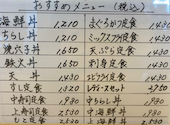 おすすめメニュー(税込)
海鮮丼 1,210
ちらし丼 1,210
焼穴子丼 1,650
鉄火丼 1,650
天丼 1,430
すし定食 1,320
中寿司定食 1,980
上寿司定食 2,530
まぐろかつ定食 1,430
ミックスフライ定食 1,430
天ぷら定食 1,430
刺身定食 1,430
エビフライ定食 1,430
レディースセット
中海鮮丼
上海鮮丼